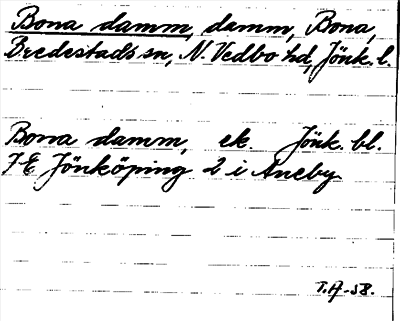 Bona damm, damm, Bona,
Bredestads sn, N. Vedbo hd, Jönk. l.
Bona damm, ek. Jönk. bl.
7E Jönköping 2 i Aneby
T.A. 58.